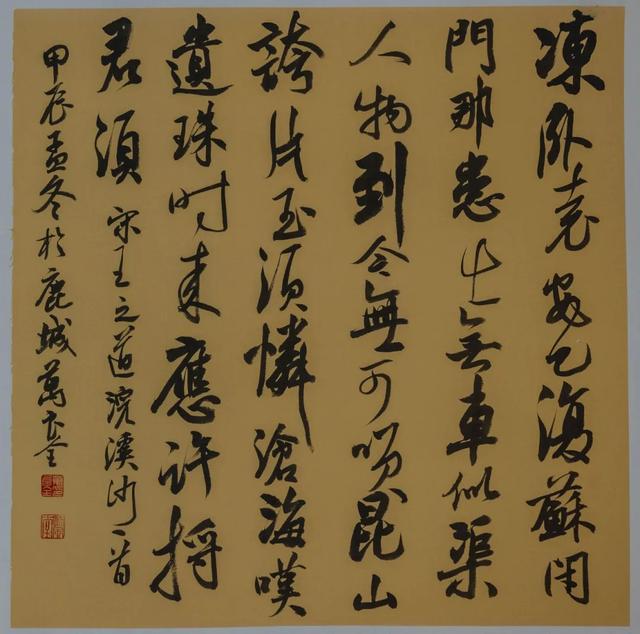 凍卧袁安已復蘇閉
門那患出無車似渠
人物到今無可咲昆山
誇片玉須憐滄海嘆
遺珠时来應許捋
君須 宋王之道浣溪沙一首
甲辰孟冬於鹿城萬